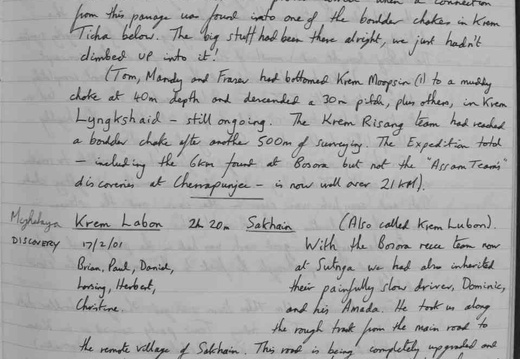 when a connection
from this passage was found into one of the boulder chokes in Krem
Ticha below. The big stuff had been there alright, we just hadn't
climbed up into it!
(Tom, Mandy and Fraser had bottomed Krem Moopsin (1) to a muddy
choke at 40m depth and descended a 30m pitch, plus others, in Krem
Lyngkshaid - still ongoing. The Krem Risang team had reached
a boulder choke after another 500m of surveying. The Expedition total
- including the 6km found at Bosora but not the "Assam Team's"
discoveries at Cherrapunjee - is now well over 21 KM).
Meghalaya Krem Labon 2h 20m Sakhain (Also called Krem Lubon).
DISCOVERY 17/2/01 With the Bosora recce team now
Brian, Paul, Daniel, at Sutnga we had also inherited
Lorsing, Herbert, their painfully slow driver, Dominic,
Christine. and his Amada. He took us along
the rough track from the main road to
the remote village of Sakhain. This road is being completely upgraded and